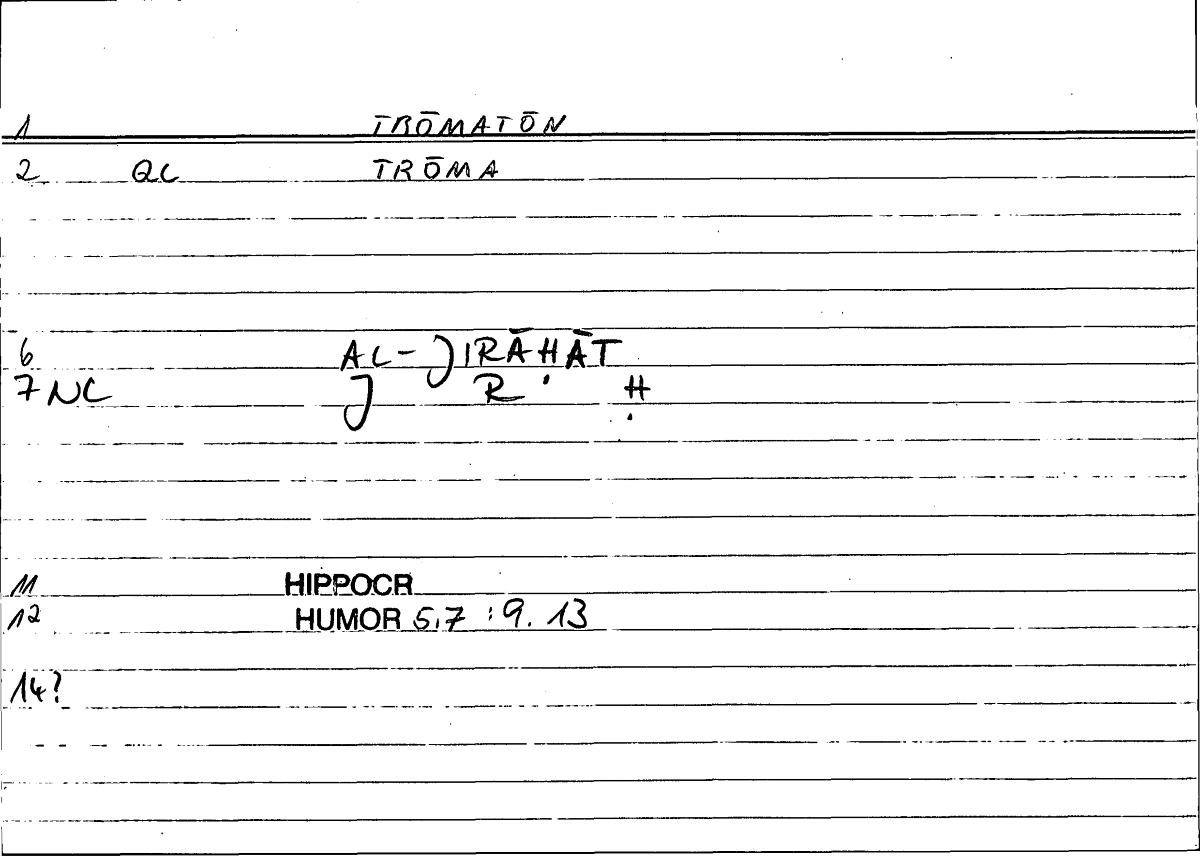 1 TRŌMATŌN
2 QC TRŌMA
6 AL-JIRĀḤĀT
7 NC J R Ḥ
11 HIPPOCR
12 HUMOR 5,7 : 9. 13
14?